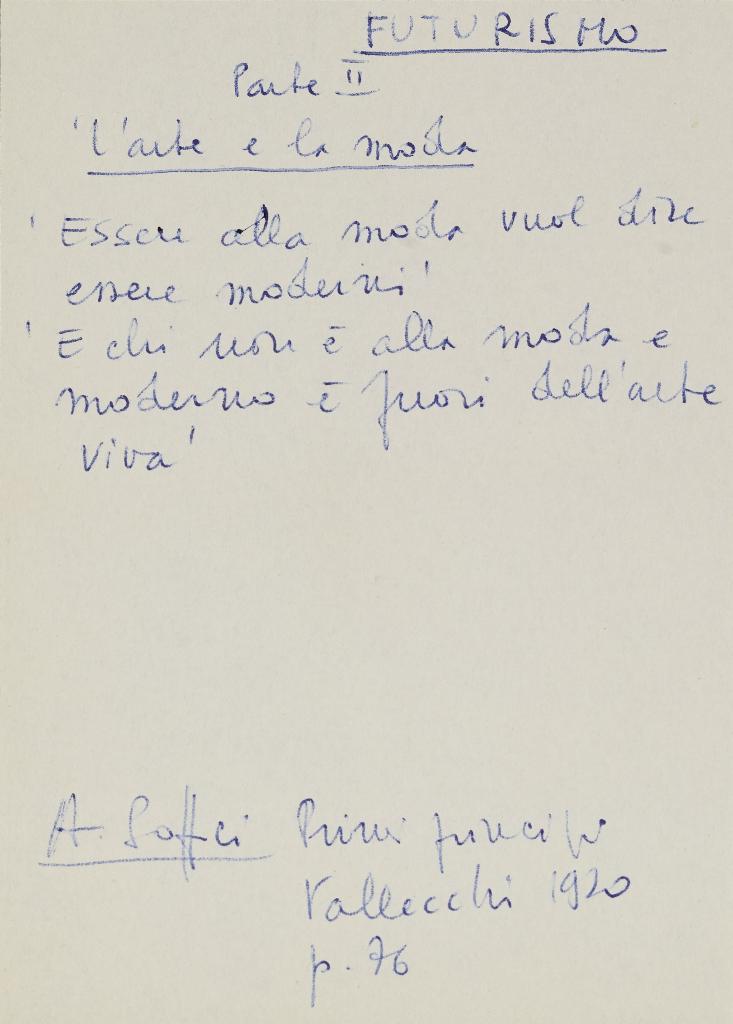 FUTURISMO
Parte II
'L'arte e la moda
'Essere alla moda vuol dire
essere moderni'
'E chi non è alla moda e
moderno è fuori dell'arte
viva'
A. Soffici Primi principi
Vallecchi 1920
p. 76